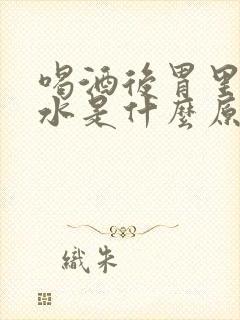 喝酒後胃里
水是什麼原
織朱